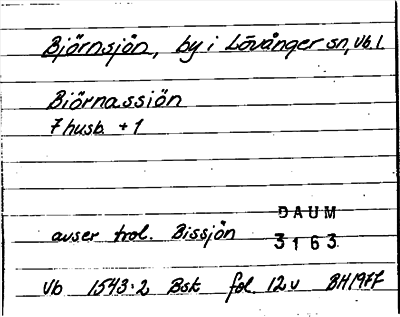 Björnsjön, by i Lövånger sn, Vb l.
Biörnassiön
7 husb. + 1
DAUM
avser trol. Bissjön
3163
Vb 1543:2 Bsk fol. 12v BH1977